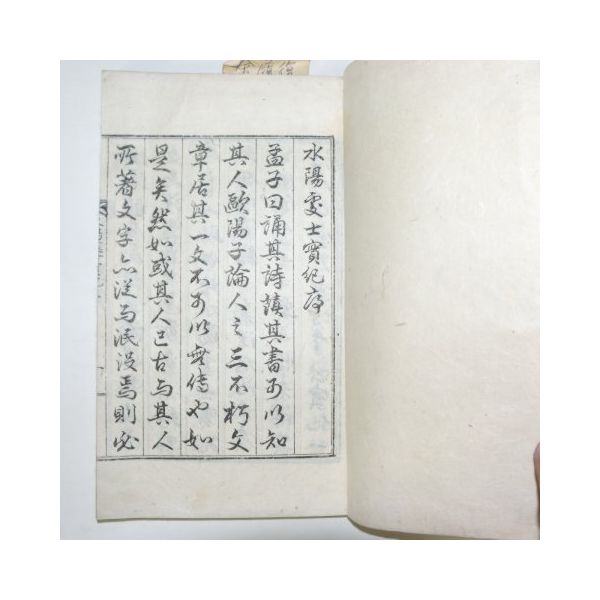 水陽處士實紀序
孟子曰誦其詩讀其書可以知
其人歐陽子論人之三不朽文
章居其一文不可以無傳也如
是矣然如或其人已古与其人
所著文字亦從与泯沒焉則必